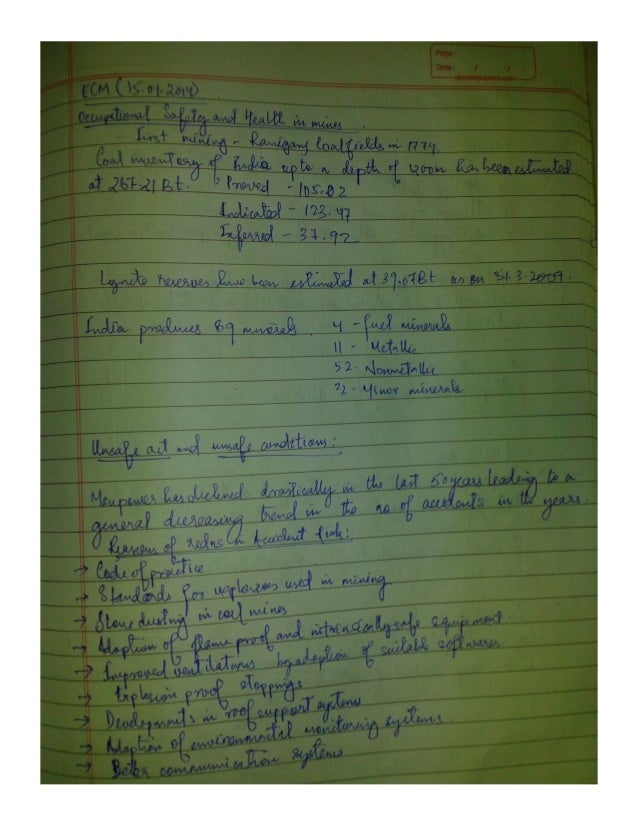 Page:
Date: / /
pioneerpapers.com
ECM (15.01.2014)
Occupational Safety and Health in mines.
- First mining - Raniganj Coalfields in 1774.
Coal inventory of India upto a depth of 1200m has been estimated
at 267.21 Bt. Proved - 105.82
Indicated - 123.47
Inferred - 37.92
Lignite reserves have been estimated at 39.07Bt as on 31.3.2009.
India produces 89 minerals. 4 - fuel minerals
11 - Metallic
52 - Nonmetallic
22 - Minor minerals.
Unsafe act and unsafe conditions:
Manpower has declined drastically in the last 50 years leading to a
general decreasing trend in the no. of accidents in the years.
Reasons of redns in Accident
→ Code of practice
→ Standards for explosives used in mining
→ Stone dusting in coal mines
→ Adoption of flame proof and intrinsically safe equipment.
→ Improved ventilations by adoption of suitable softwares.
→ Explosion proof stoppings
→ Developments in roof support systems
→ Adoption of environmental monitoring systems.
→ Better communication systems